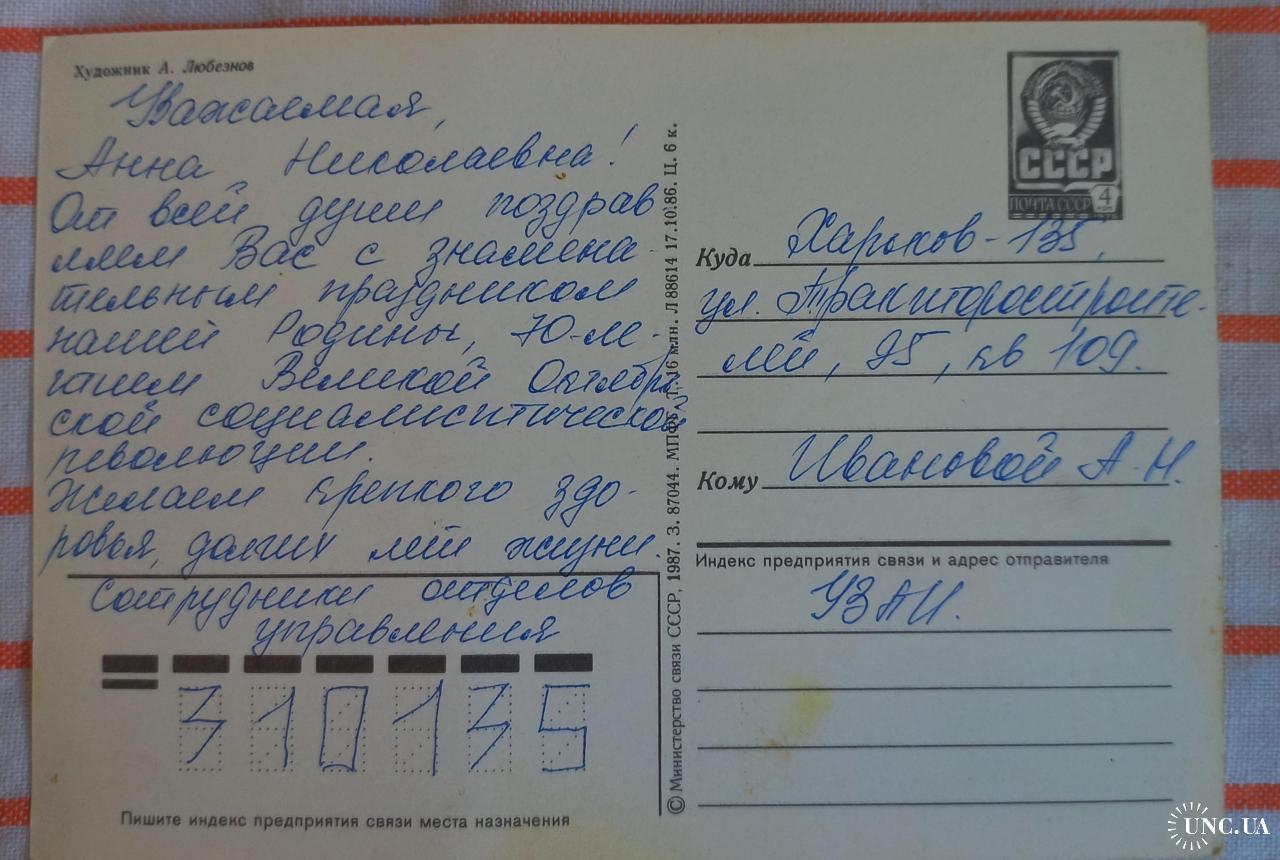 Художник А. Любезнов
Уважаемая,
Анна Николаевна!
От всей души поздрав
ляем Вас с знамена-
тельным праздником
нашей Родины, 70-ле-
тием Великой Октябрь
ской социалистической
революции.
Желаем крепкого здо-
ровья, долгих лет жизни.
Сотрудники отделов
управления
310135
Пишите индекс предприятия связи места назначения
© Министерство связи СССР, 1987. З. 87044. МПФГ. Т. 16 млн. Л 88614 17.10.86. Ц. 6 к.
СССР
ПОЧТА СССР 4
Куда Харьков-135,
ул. Тракторостроите-
лей, 95, кв 109.
Кому Ивановой А.Н.
Индекс предприятия связи и адрес отправителя
УЗАИ.
UNC.UA